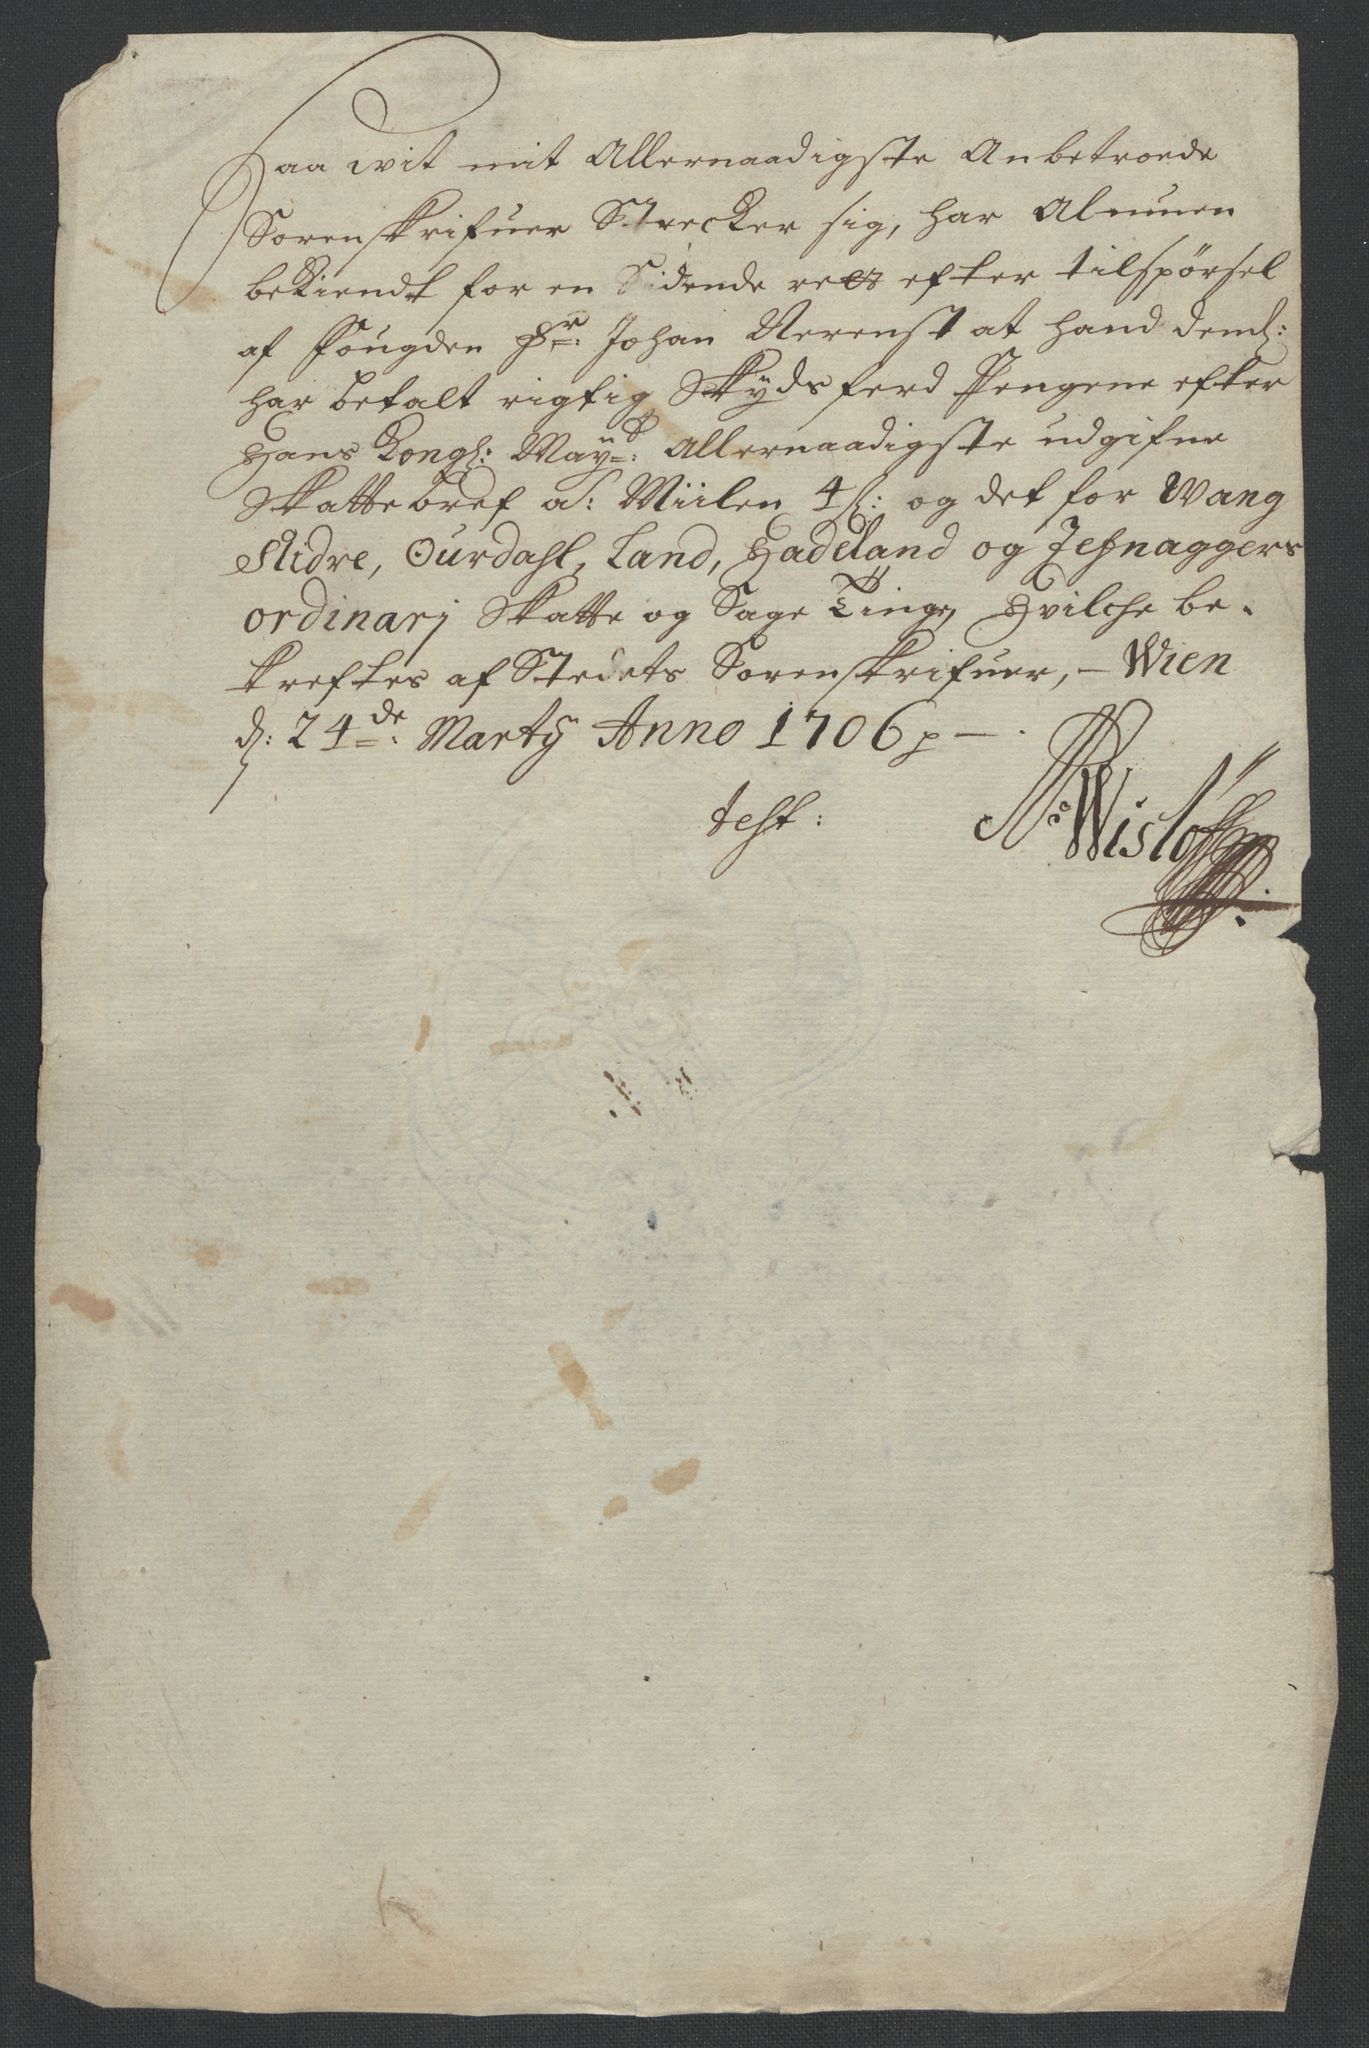 Saa wit mit Allernaadigste Anbetroede
Sorenskrifuer Strecker sig, har Almuen
bekiendt for en Sidende rett efter tilspörsel
af fougden Hr: Johan Nerenst at hand deml:
har betalt rigtig Skÿdsferd Pengene efter
Hans Kongl: Mayts: Allernaadigste udgifne
Skattebref a: Miilen 4 s: og det for Wang
Slidre, Ourdahl, Land, Hadeland og Jefsnaggers
ordinarj Skatte og Sage Tinge, Hvilche be-
kreftes af Stedets Sorenskrifuer, - Wien
d: 24de: Martÿ Anno 1706 p -.
test:
Ns Wislöff